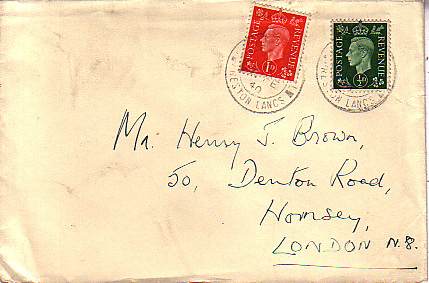 POSTAGE REVENUE
1D
POSTAGE REVENUE
½D
PRESTON LANCS
PRESTON LANCS
Mr. Henry J. Brown,
50, Denton Road,
Hornsey,
LONDON N.8.